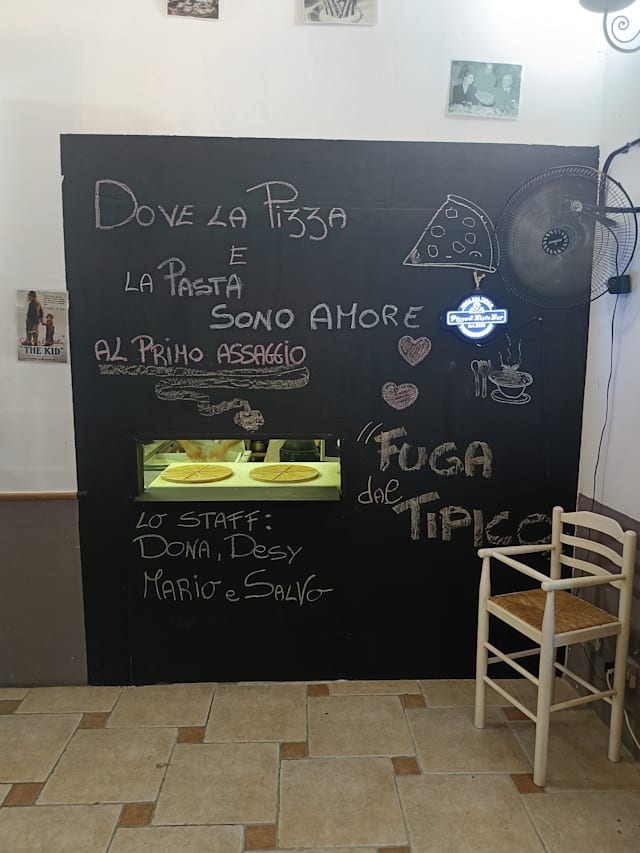 DOVE LA PIZZA
E
LA PASTA
SONO AMORE
AL PRIMO ASSAGGIO
"FUGA
dal
TIPICO
LO STAFF:
DONA, DESY
MARIO e SALVO
THE KID